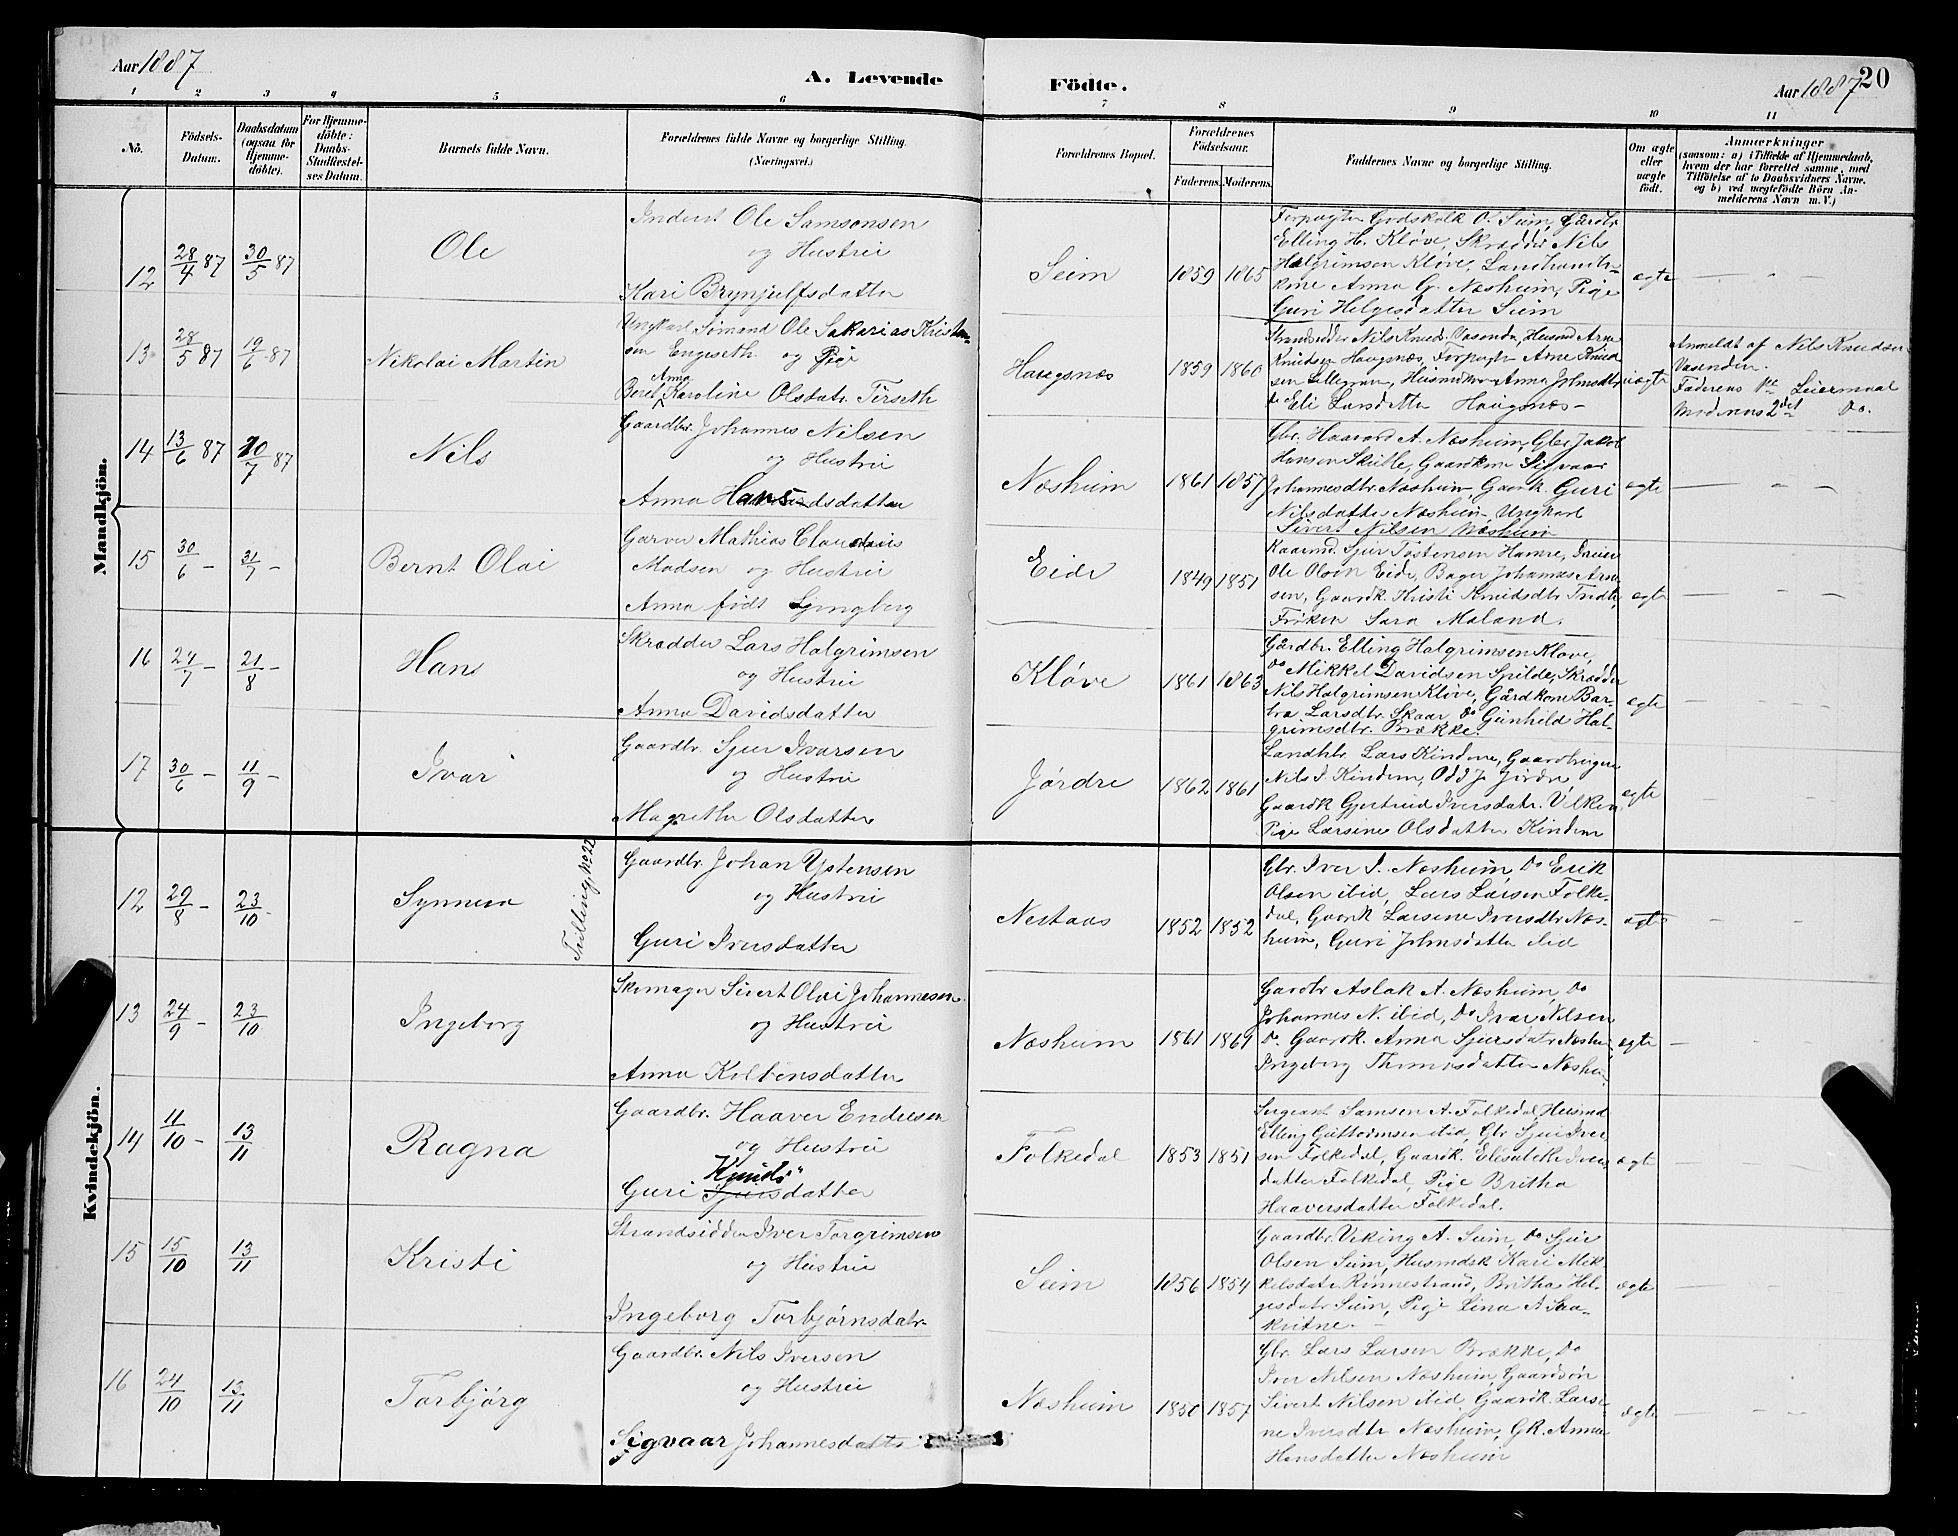 Aar 1887
A. Levende
Födte.
Aar 1887
20
1 2 3 4 5 6 7 8 9 10 11
No.
Födsels-
Datum.
Daabsdatum
(ogsaa for
Hjemme-
döbte).
For Hjemme-
döbte:
Daabs-
Stadfæstel-
ses Datum.
Barnets fulde Navn.
Forældrenes fulde Navne og borgerlige Stilling.
(Næringsvei.)
Forældrenes Bopæl.
Forældrenes
Födselsaar.
Faderens. Moderens.
Faddernes Navne og borgerlige Stilling.
Om ægte
eller
uægte
født.
Anmærkninger
(saasom: a) i Tilfælde af Hjemmedaab,
hvem der har forrettet samme, med
Tilföielse af to Daabsvidners Navne.
og b) ved uægtefödte Börn An-
melderens Navn m.V.)
Mandkjön.
12 28/4 87 30/5 87 Ole
Inderst Ole Samsonsen
og Hustru
Kari Brynjulfsdatter
Seim 1859 1865
Forpagter Godskalk O. Seim, Gårdbr
Elling H. Kløve, Skrædder Nils
Halgrimsen Kløve, Landhandl-
kone Anna G. Næsheim, Pige
Guri Helgesdatter Seim
ægte
13 28/5 87 19/6 87 Nikolai Martin
Ungkarl Sømand Ole Sakarias Kristen-
sen Engeseth og Pige
Anna
Beret Karoline Olsdatr. Tirseth
Haugsnæs 1859 1860
Strandsidder Nils Knuds. Vasenden, Husmd Arne
Knudsen Haugsnæs, Forpagter Arne Knud
sen Lillegraven, Husmdkone Anna Johnsdtr
do Eli Larsdatter Haugsnæs
uægte
Anmeldt af Nils Knudsen
Vasenden.
Faderens 1ste Leiermaal
Moderens 2det Do.
14 13/6 87 10/7 87 Nils
Gaardbr. Johannes Nilsen
og Hustru
Anna Hansdatter
Næsheim 1861 1857
Gbr. Haavard A. Næsheim, Gbr. Jakob
Hansen Skutle, Gaardkone Sigvaar
Johannesdtr. Næsheim, Gaardk. Guri
Nilsdatter Næsheim, Ungkarl
Sivert Nilsen Næsheim
ægte
15 30/6 – 31/7 – Bernt Olai
Garver Mathias Claudius
Madsen og Hustru
Anna født Ljungberg
Eide 1849 1851
Kaarmd. Sjur Tostensen Hamre, Dreier
Ole Olsen Eide, Bager Johannes Arne
sen, Gaardk. Kristi Knudsdtr Tndte,
Frøken Sara Maland.
ægte
16 24/7 – 21/8 – Hans
Skrædder Lars Halgrimsen
og Hustru
Anna Davidsdatter
Kløve 1861 1863
Gårdbr. Elling Halgrimsen Kløve,
Do Mikkel Davidsen Spilde, Skrædder
Nils Halgrimsen Kløve, Gårdkone Bar-
bra Larsdtr. Skaar, Do Gunhild Hal-
grimsdtr. Brække.
ægte
17 30/6 – 11/9 – Ivar
Gaardbr. Sjur Ivarsen
og Hustru
Magrethe Olsdatter
Jørdre 1862 1861
Landhbr. Lars Kindem, Gaardbruger
Nils I. Kindem, Odd J. Jørdre
Gaardk Gjertrud Iversdatr. Vilken
Pige Larsine Olsdatter Kindem
ægte
Kvindekjön.
12 29/8 – 23/10 – Synneva
Tvilling No 22
Gaardbr. Johan Ystensen
og Hustru
Guri Iversdatter
Nestaas 1852 1852
Gbr. Iver I. Næsheim, Do Erik
Olsen ibid, Lars Larsen Folke-
dal, Gaardk Larsine Iversdtr Næs-
heim, Guri Johnsdatter ibid
ægte
13 24/9 – 23/10 Ingeborg
Skomager Sivert Olai Johannesen
og Hustru
Anna Kolbensdatter
Næsheim 1861 1869
Gardbr Aslak A. Næsheim, Do
Johannes N. ibid, Do Ivar Nilsen
Do Gaardk. Anna Sjursdatr Næshei
Ingeborg Thomasdatter Næshei
ægte
14 11/10 – 13/11 Ragna
Gaardbr. Haaver Endresen
og Hustru
Knuds
Guri Sjursdatter
Folkedal 1853 1851
Sergeant Samson A. Folkedal, Husmd
Elling Guttormsen ibid, Gbr Sjur Iver
sen Folkedal, Gaardk. Elisabeth Ivers
datter Folkedal, Pige Britha
Haaversdatter Folkedal.
ægte
15 15/10 13/11 Kristi
Strandsidder Iver Torgrimsen
og Hustru
Ingeborg Torbjørnsdatr
Seim 1856 1854
Gaardbr. Viking A. Seim, Do Sjur
Olsen Seim, Husmdsk Kari Mik
kelsdatr Rønnestrand, Britha Hel-
gesdatr Seim, Pige Lina A Saa-
kvitne.
ægte
16 24/10 13/11 Torbjørg
Gaardbr. Nils Iversen
og Hustru
Sigvaar Johannesdattr
Næsheim 1850 1857
Gbr. Lars Larsen Brække, Do
Iver Nilsen Næsheim, Gaardsøn
Sivert Nilsen ibid, Gaardk. Larsi-
ne Iversdtr Næsheim, GK. Anna
Hansdatter Næsheim
ægte